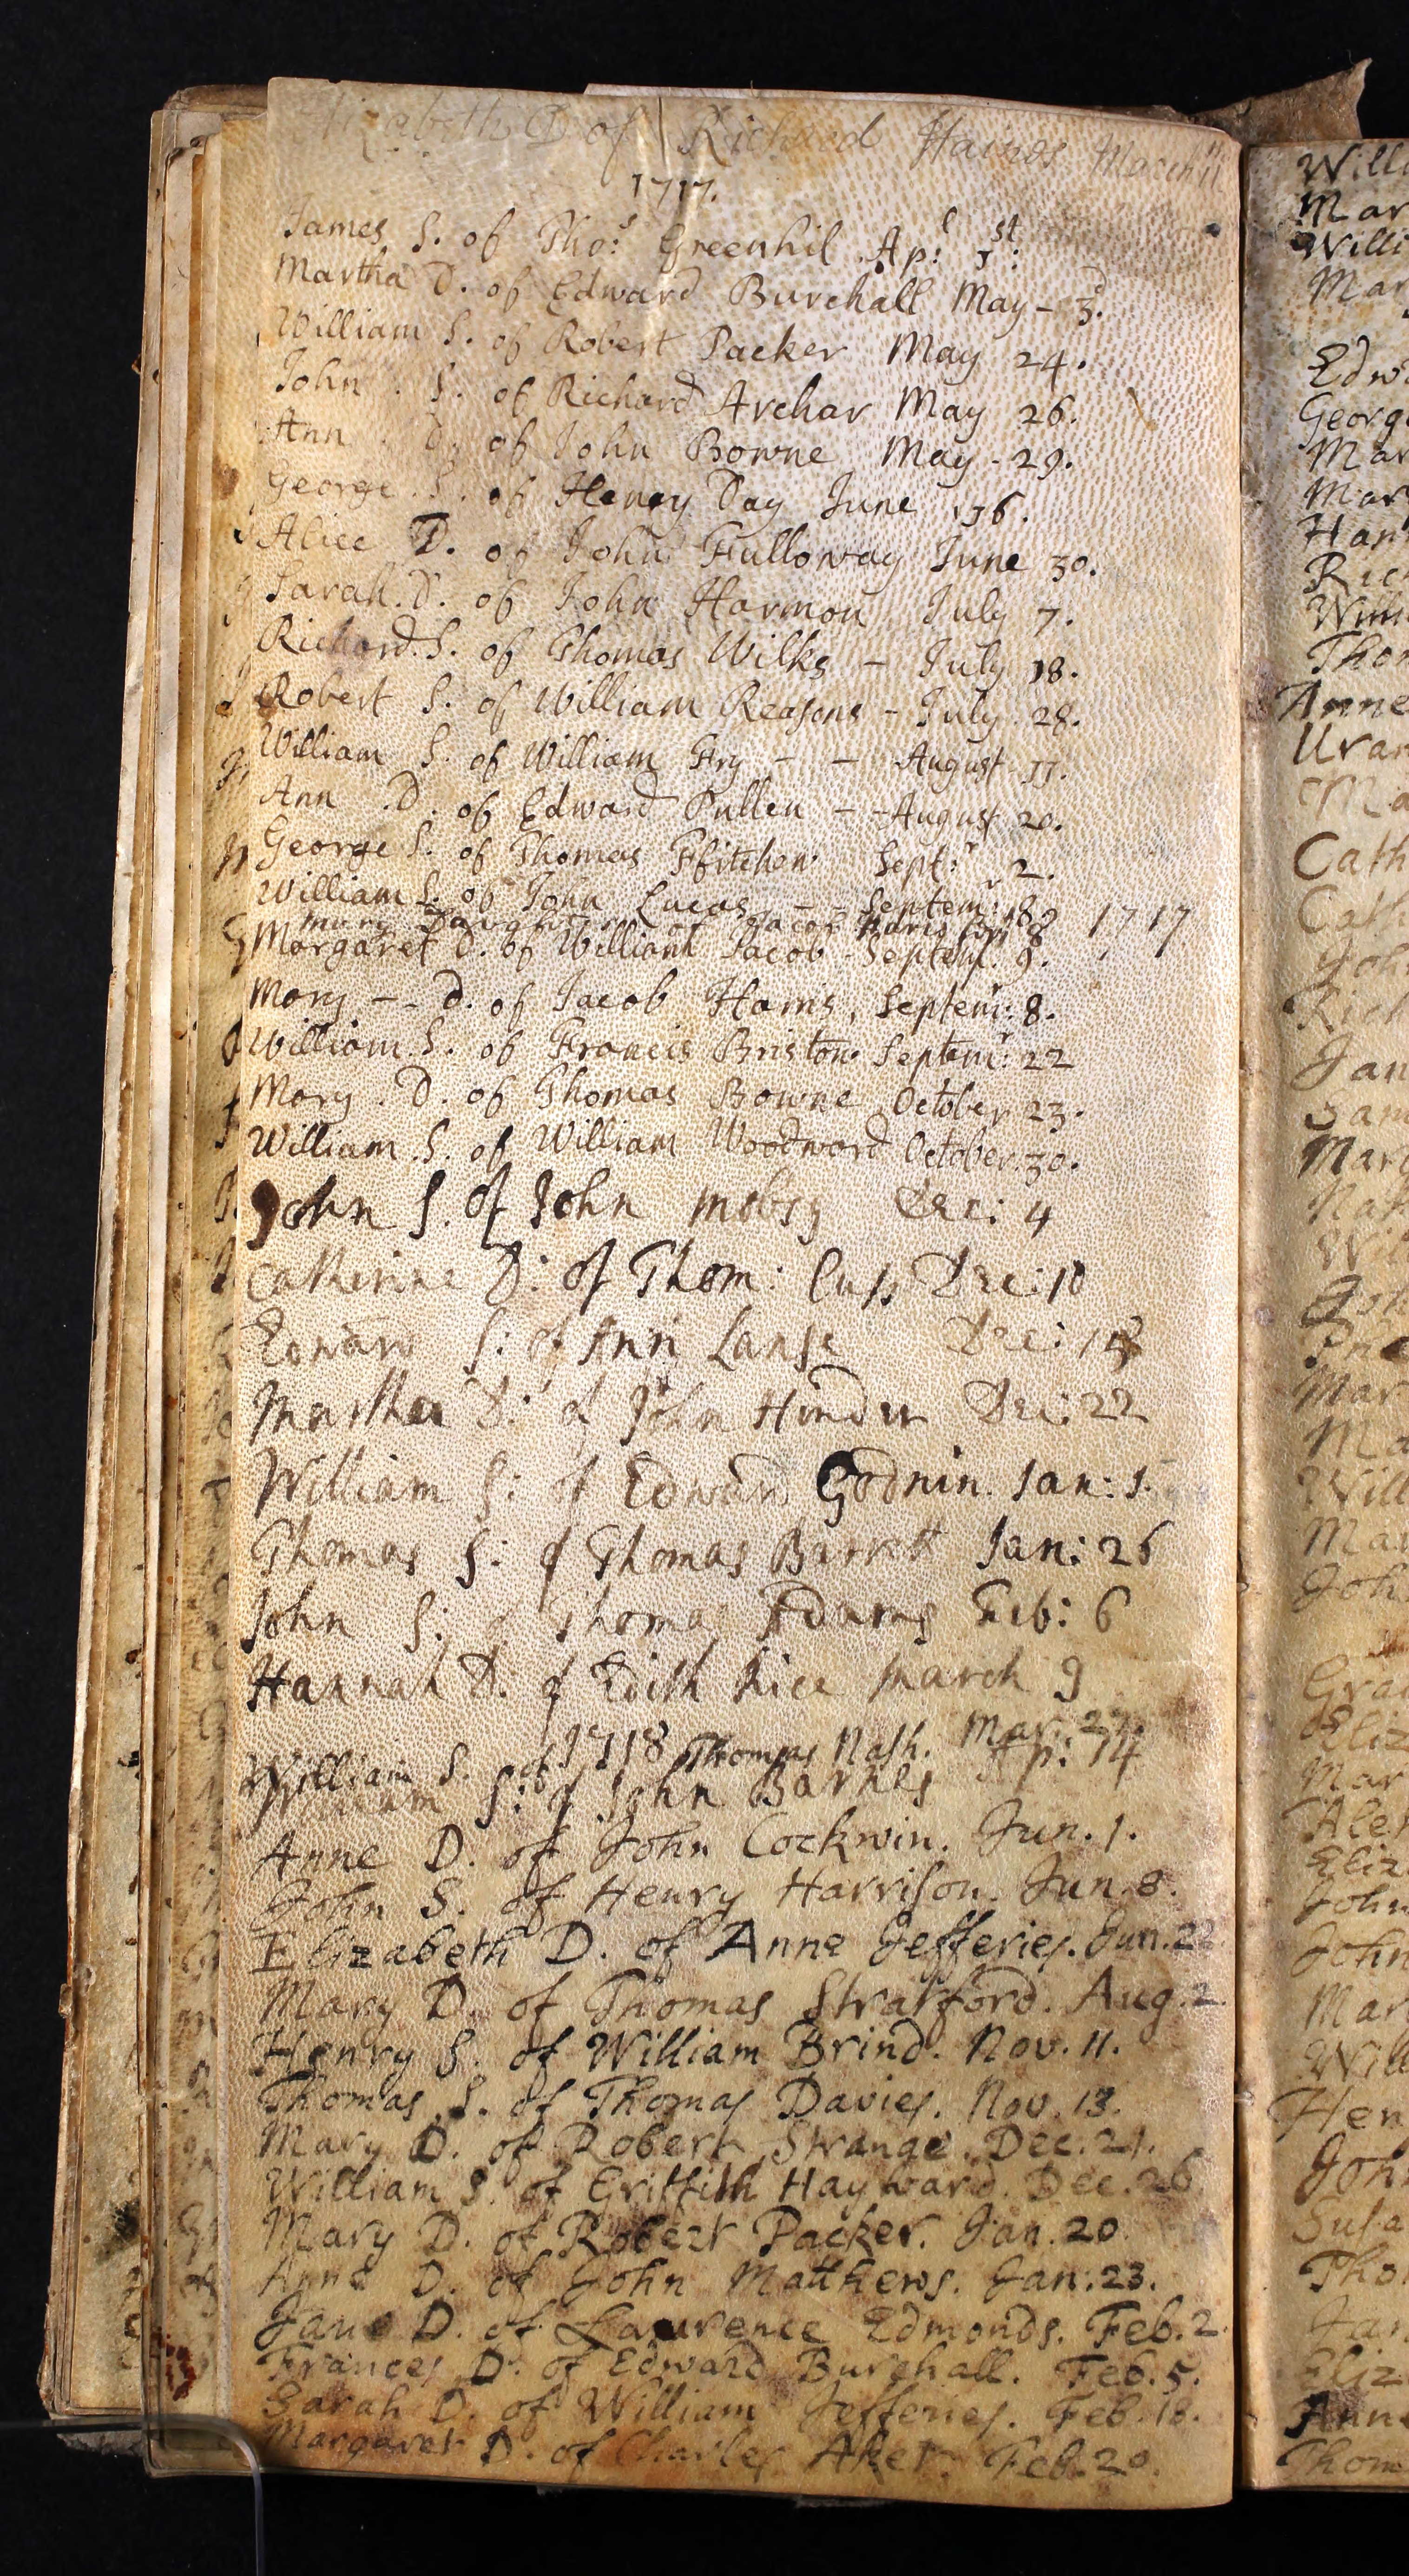 Elizabeth D of Richard Haines March 11
1717.
James S. of Tho:s Greenhil Ap:l 1st:
Martha D. of Edward Burchall May - 3d.
William S. of Robert Packer May 24.
John S. of Richard Archar May 26.
Ann D. of John Bowne May - 29.
George S. of Henry Day June 16.
Alice D. of John Fulloway June 30.
Sarah D. of John Harmon July 7.
Richard S. of Thomas Wilks - July 18.
Robert S. of William Reasons - July 28.
William S. of William Fry - - August 11.
Ann D. of Edward Pullen - - August 20.
George S. of Thomas Ffitchew Sept:r 2.
William S. of John Lucas - - Septem: 8.
mary Daughter of Jacob haris 8 1717
Margaret D. of William Jacob - Septem:r 9.
Mary - - D. of Jacob Harris, Septem:r 8.
William S. of Francis Briston Septem:r 22
Mary D. of Thomas Bowne October 23.
William S. of William Woodward October 30.
John S. of John mobsy Dec: 4
Catherine D: of Thom: Cuss Dec: 10
Edward S: of Ann Lanse Dec:
Martha D: of John Hinder Dec: 22
William S: of Edward Godnin Jan: 1.
Thomas S: of Thomas Barrett Jan: 26
John S: of Thomas Adams Feb: 6
Hannah D. of Edith Rice March 9
1718
William S. of Thomas Nash. Mar. 27.
William S: of John Barnes Ap: 14
Anne D. of John Cockwin. Jun. 1.
John S. of Henry Harrison. Jun. 8.
Elizabeth D. of Anne Jefferies. Jun. 22
Mary D. of Thomas Stratford. Aug. 2
Henry S. of William Brind. Nov. 11.
Thomas S. of Thomas Davies. Nov. 13.
Mary D. of Robert Strange. Dec. 21.
William S. of Griffith Hayward. Dec. 26
Mary D. of Robert Packer. Jan. 20.
Anne D. of John Matthews. Jan. 23.
Jane D. of Lawrence Edmonds. Feb. 2
Frances D. of Edward Burchall. Feb. 5.
Sarah D. of William Jefferies. Feb. 18.
Margaret D. of Charles Aker. Feb. 20.